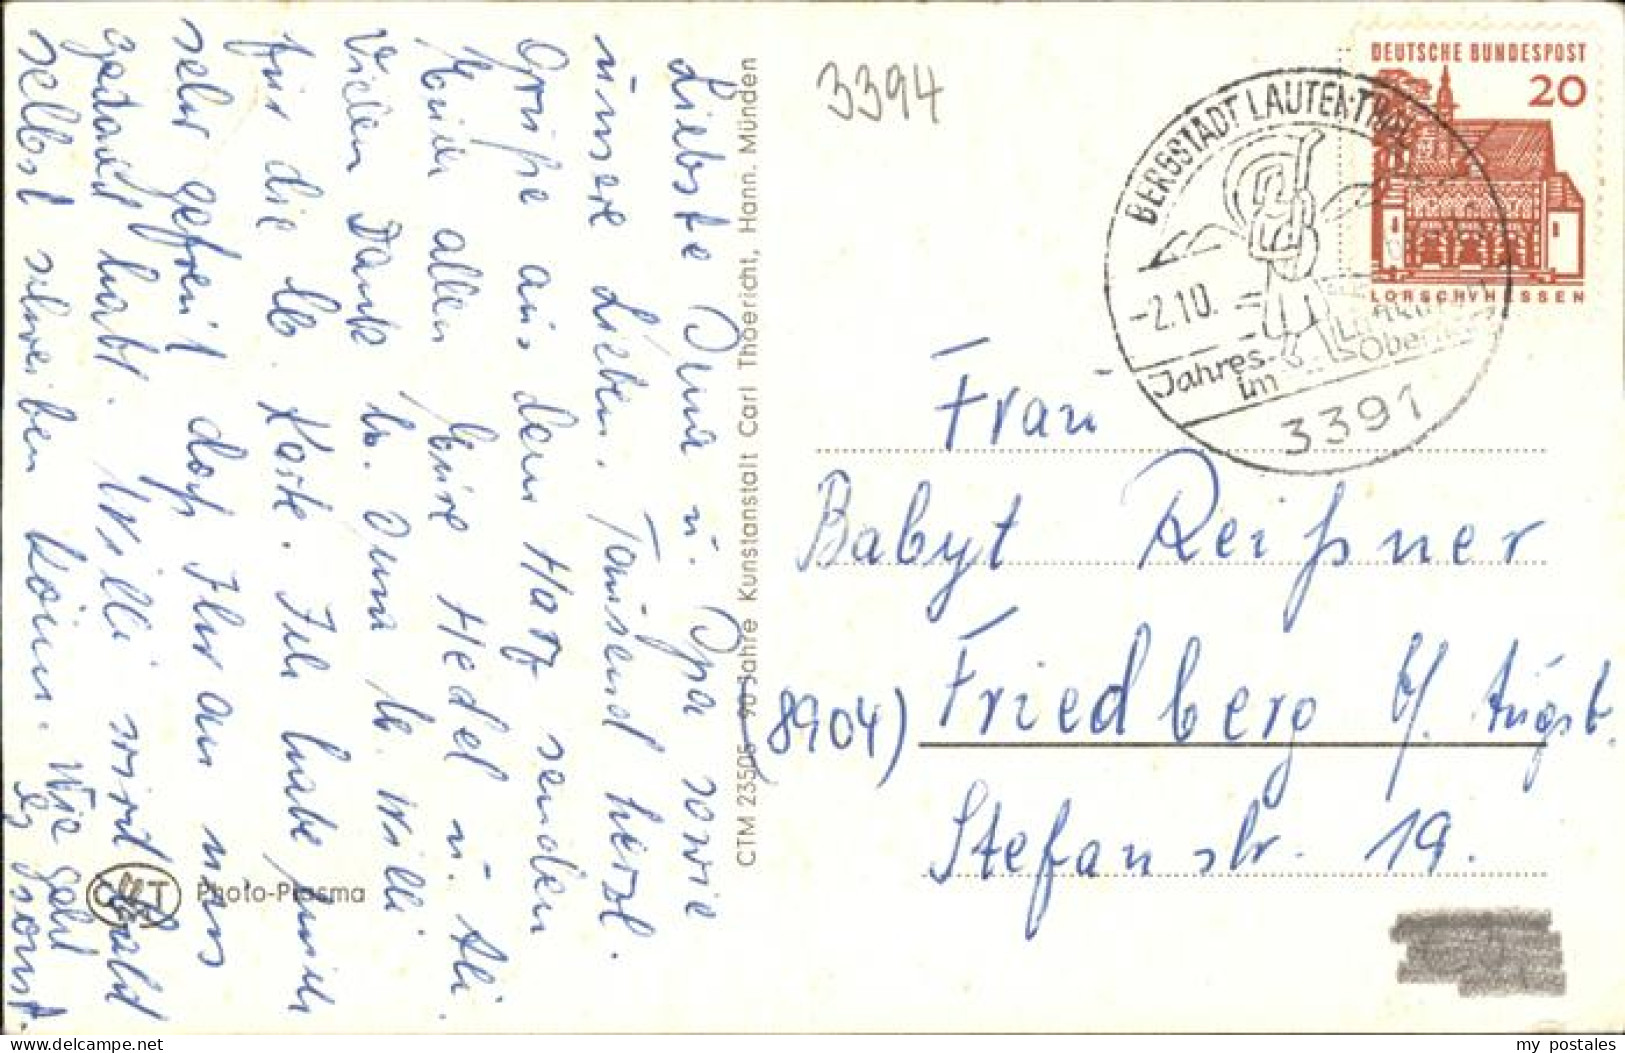 Liebste Oma u. Opa sowie
unsere Lieben. Tausend herzl.
Grüße aus dem Harz senden
Euch allen Eure Hedel u. Ali.
Vielen Dank lb. Oma lb. Willi
für die lb. Karte. Ich habe mich
sehr gefreut daß Ihr an uns
gedacht habt. Willi wird bald
selbst schreiben können. Wie geht
es sonst.
Photo-Plasma
CTM 23506 90 Jahre Kunstanstalt Carl Thoericht, Hann. Münden
3394
DEUTSCHE BUNDESPOST
20
LORSCH/HESSEN
BERGSTADT LAUTENTHAL
-2.10.
Jahres-
im Oberharz
3391
Frau
Babyt Reißner
8904) Friedberg b/ Augsb.
Stefanstr. 19.
my_postales